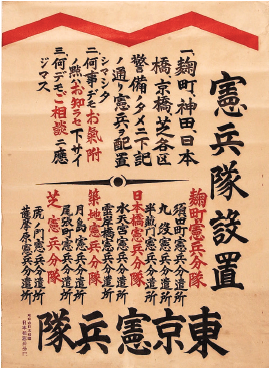 憲兵隊設置
一、麹町、神田、日本
橋、京橋、芝各区
警備ノタメニ下記
ノ通リ憲兵ヲ配置
シマシタ
二、何事デモお氣附
ノ點ハお知らせ下サイ
三、何デモご相談ニ應
ジマス
麹町憲兵分隊
須田町憲兵分遣所
九段憲兵分遣所
半蔵門憲兵分遣所
日本橋憲兵分隊
水天宮憲兵分遣所
霊岸橋憲兵分遣所
築地憲兵分隊
月島憲兵分遣所
尾張町憲兵分遣所
芝憲兵分隊
虎ノ門憲兵分遣所
薩摩原憲兵分遣所
東京憲兵隊